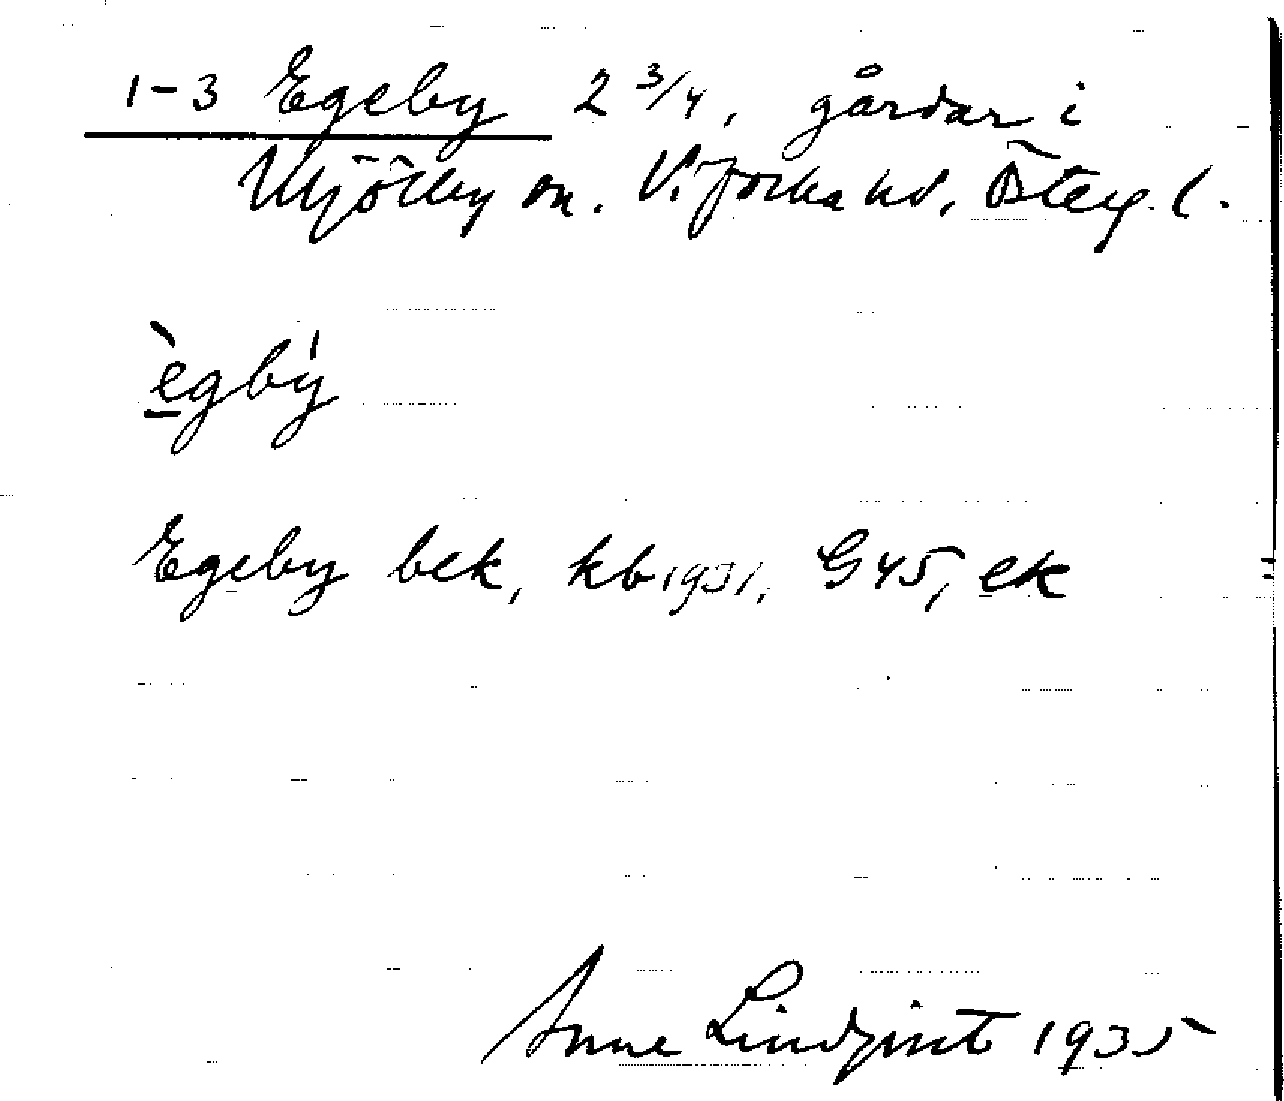 1-3 Egeby 2 3/4, gårdar i
Mjölby sn. Vifolka hd, Östergl.
ègbý
Egeby bek, kb 1931, G45, ek
Sune Lindqvist 1935